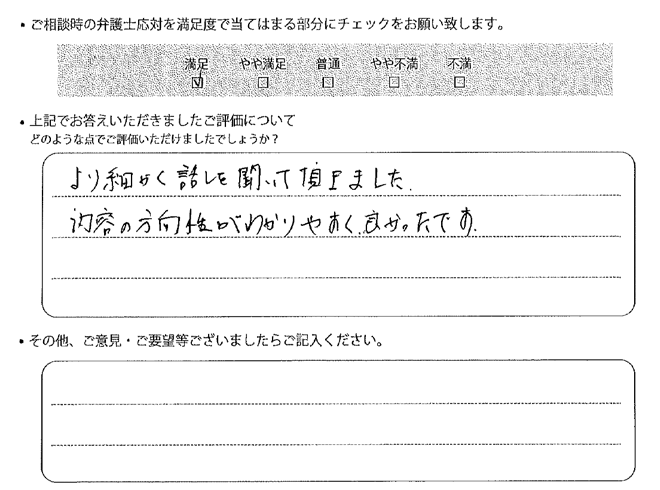 ・ご相談時の弁護士応対を満足度で当てはまる部分にチェックをお願い致します。
満足 やや満足 普通 やや不満 不満
☑ □ □ □ □
・上記でお答えいただきましたご評価について
どのような点でご評価いただけましたでしょうか？
より細かく話しを聞いて頂きました.
内容の方向性がわかりやすく、良かったです.
・その他、ご意見・ご要望等ございましたらご記入ください。